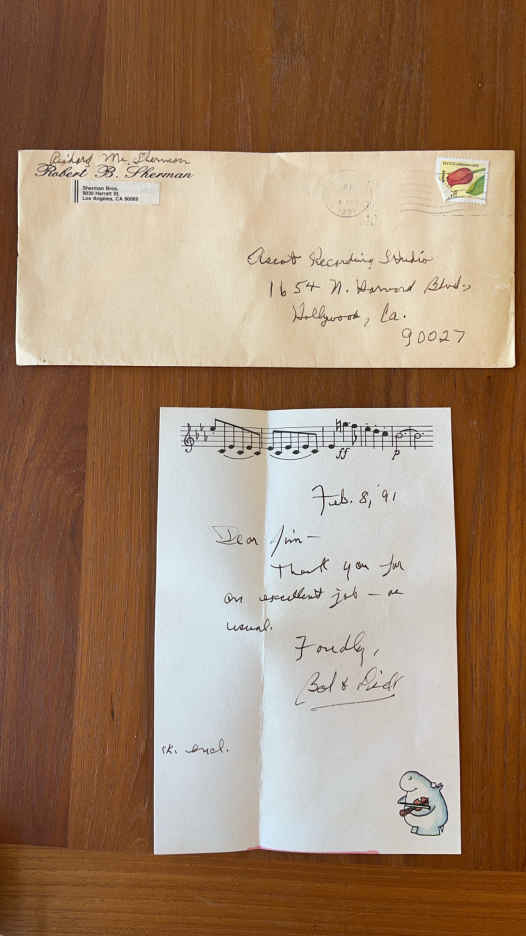 Richard M. Sherman
Robert B. Sherman
Sherman Bros.
Los Angeles, CA
Ascot Recording Studio
1654 N. Harvard Blvd.,
Hollywood, Ca.
90027
ff
p
Feb. 8, '91
Dear Jim—
Thank you for
an excellent job — as
usual.
Fondly,
Bob & Dick
ck. encl.